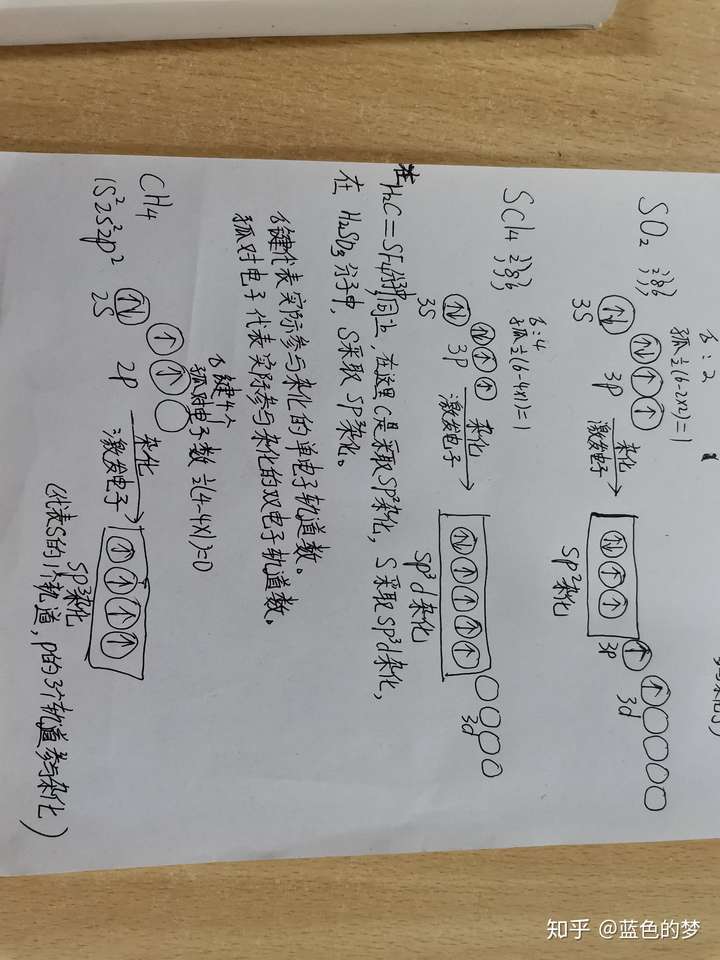 SO₂
σ:2
孤½(6-2×2)=1
3S
3P
杂化
激发电子
sp²杂化
3p
3d
SCl₄
σ:4
孤½(6-4×1)=1
3S
3P
杂化
激发电子
sp³d杂化
3d
在H₂C=SF₄分子中, 在这里C是采取SP²杂化, S采取sp³d杂化,
在 H₂SO₃分子中, S采取 SP³杂化。
σ键代表实际参与杂化的单电子轨道数。
孤对电子代表实际参与杂化的双电子轨道数。
CH₄
σ键4个
孤对电子数 ½(4-4×1)=0
1S²2S²2p²
2S
2P
杂化
激发电子
SP³杂化
(代表S的1个轨道, p的3个轨道参与杂化)
知乎 @蓝色的梦